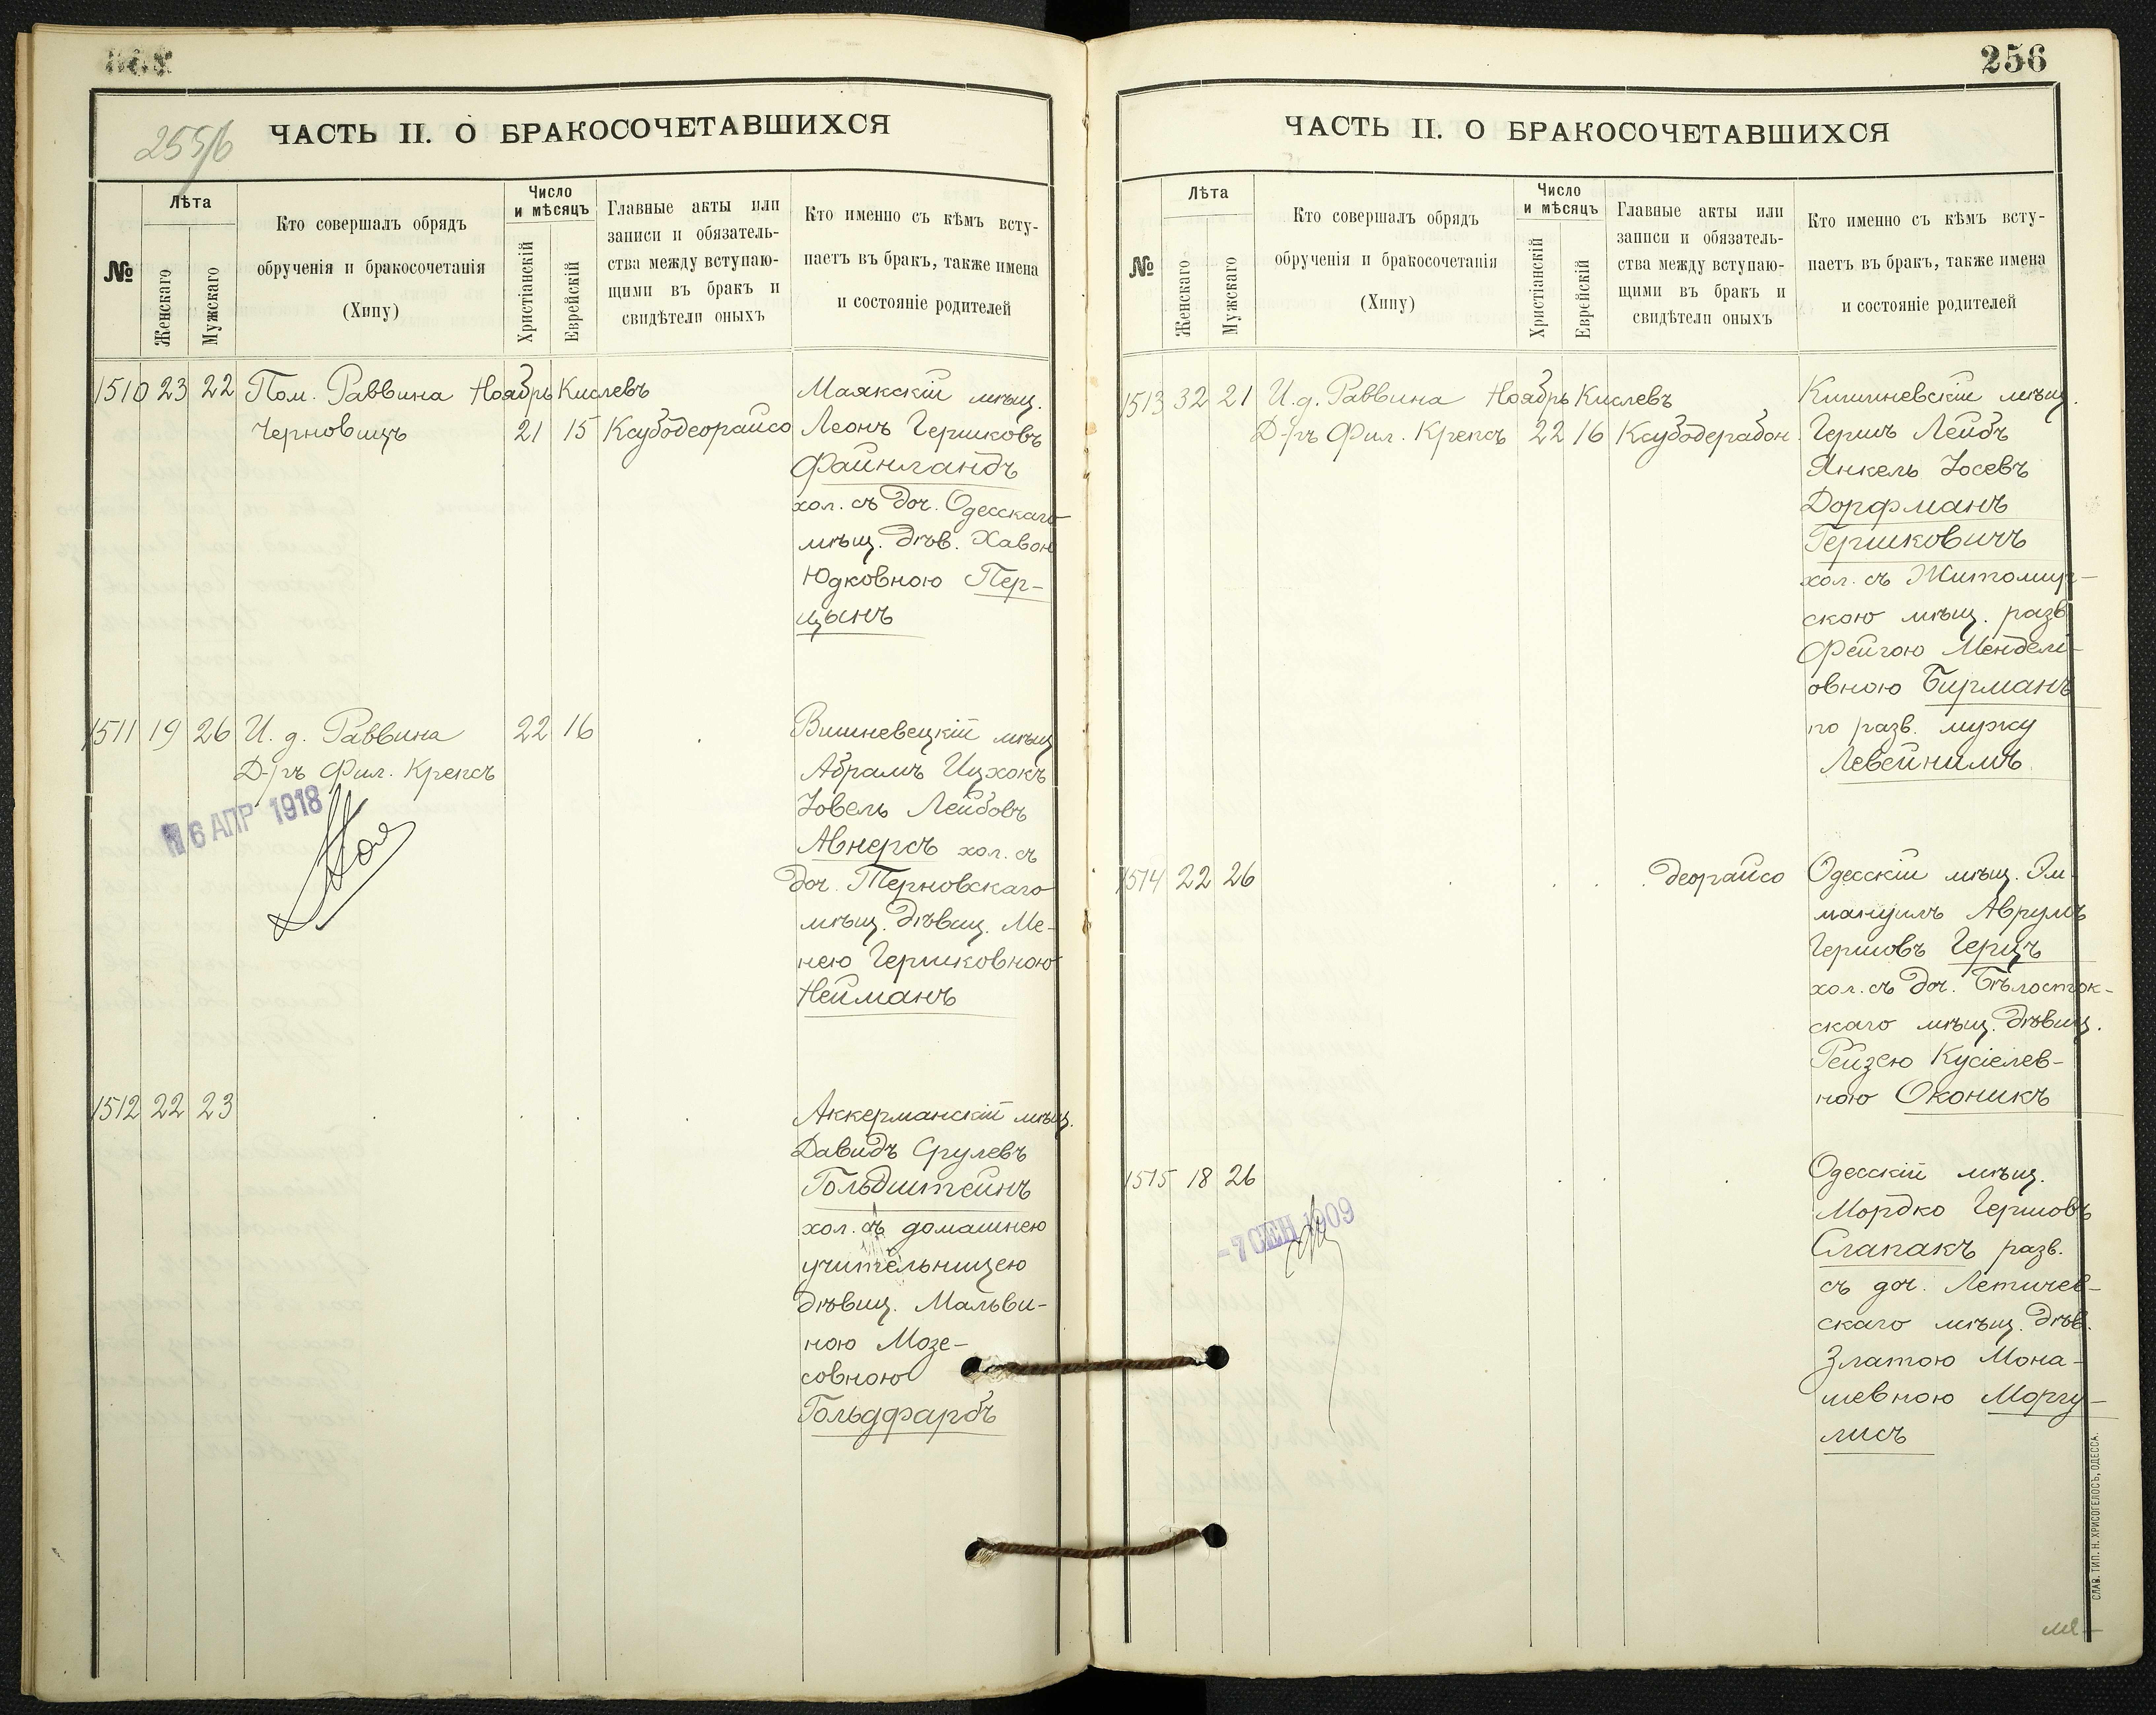 255/б
ЧАСТЬ II. О БРАКОСОЧЕТАВШИХСЯ
№
Лѣта
Женскаго
Мужскаго
Кто совершалъ обрядъ
обрученія и бракосочетанія
(Хипу)
Число
и мѣсяцъ
Христіанскій
Еврейскій
Главные акты или
записи и обязатель-
ства между вступаю-
щими въ бракъ и
свидѣтели оныхъ
Кто именно съ кѣмъ всту-
паетъ въ бракъ, также имена
и состояніе родителей
1510 23 22 Пом. Раввина Ноябрь Кислевъ Маякскій мѣщ.
Черновицъ 21 15 Ксубодеорайсо Леонъ Гершковъ
Файнландъ
хол. съ доч. Одесскаго
мѣщ. дѣв. Хавою
Юдковною Пер-
цынъ
1511 19 26 И. д. Раввина 22 16 Вишневецкій мѣщ
Д-ръ Фил. Крепсъ Абрамъ Ицхокъ
6 АПР 1918
Іовель Лейбовъ
Авнерсъ хол. съ
доч. Терновскаго
мѣщ. дѣвиц. Ме-
нею Гершковною
Нейманъ
1512 22 23 Аккерманскій мѣщ.
Давидъ Срулевъ
Гольдштейнъ
хол. съ домашнею
учительницею
дѣвиц. Мальви-
ною Мозе-
совною
Гольдфарбъ
256
ЧАСТЬ II. О БРАКОСОЧЕТАВШИХСЯ
№
Лѣта
Женскаго
Мужскаго
Кто совершалъ обрядъ
обрученія и бракосочетанія
(Хипу)
Число
и мѣсяцъ
Христіанскій
Еврейскій
Главные акты или
записи и обязатель-
ства между вступаю-
щими въ бракъ и
свидѣтели оныхъ
Кто именно съ кѣмъ всту-
паетъ въ бракъ, также имена
и состояніе родителей
1513 32 21 И. д. Раввина Ноябрь Кислевъ Кишиневскій мѣщ.
Д-ръ Фил. Крепсъ 22 16 Ксубодерабон. Гершъ Лейбъ
Янкель Іосевъ
Дорфманъ
Гершковичъ
хол. съ Житомир-
скою мѣщ. разв
Фейгою Мендели-
овною Бирманъ
по разв. мужу
Левейнимъ
1514 22 26 деорайсо Одесскій мѣщ. Эм-
мануилъ Аврумъ
Гершовъ Герцъ
хол. съ доч. Бѣлосток-
скаго мѣщ. дѣвиц.
Рейзею Кусіелев-
ною Оконикъ
1515 18 26 Одесскій мѣщ.
- 7 СЕН 1909
Мордко Гершовъ
Слапакъ разв.
съ доч. Летичев-
скаго мѣщ. дѣв.
Златою Мона-
шевною Моргу-
лисъ
СЛАВ. ТИП. Н. ХРИСОГЕЛОСЪ, ОДЕССА.